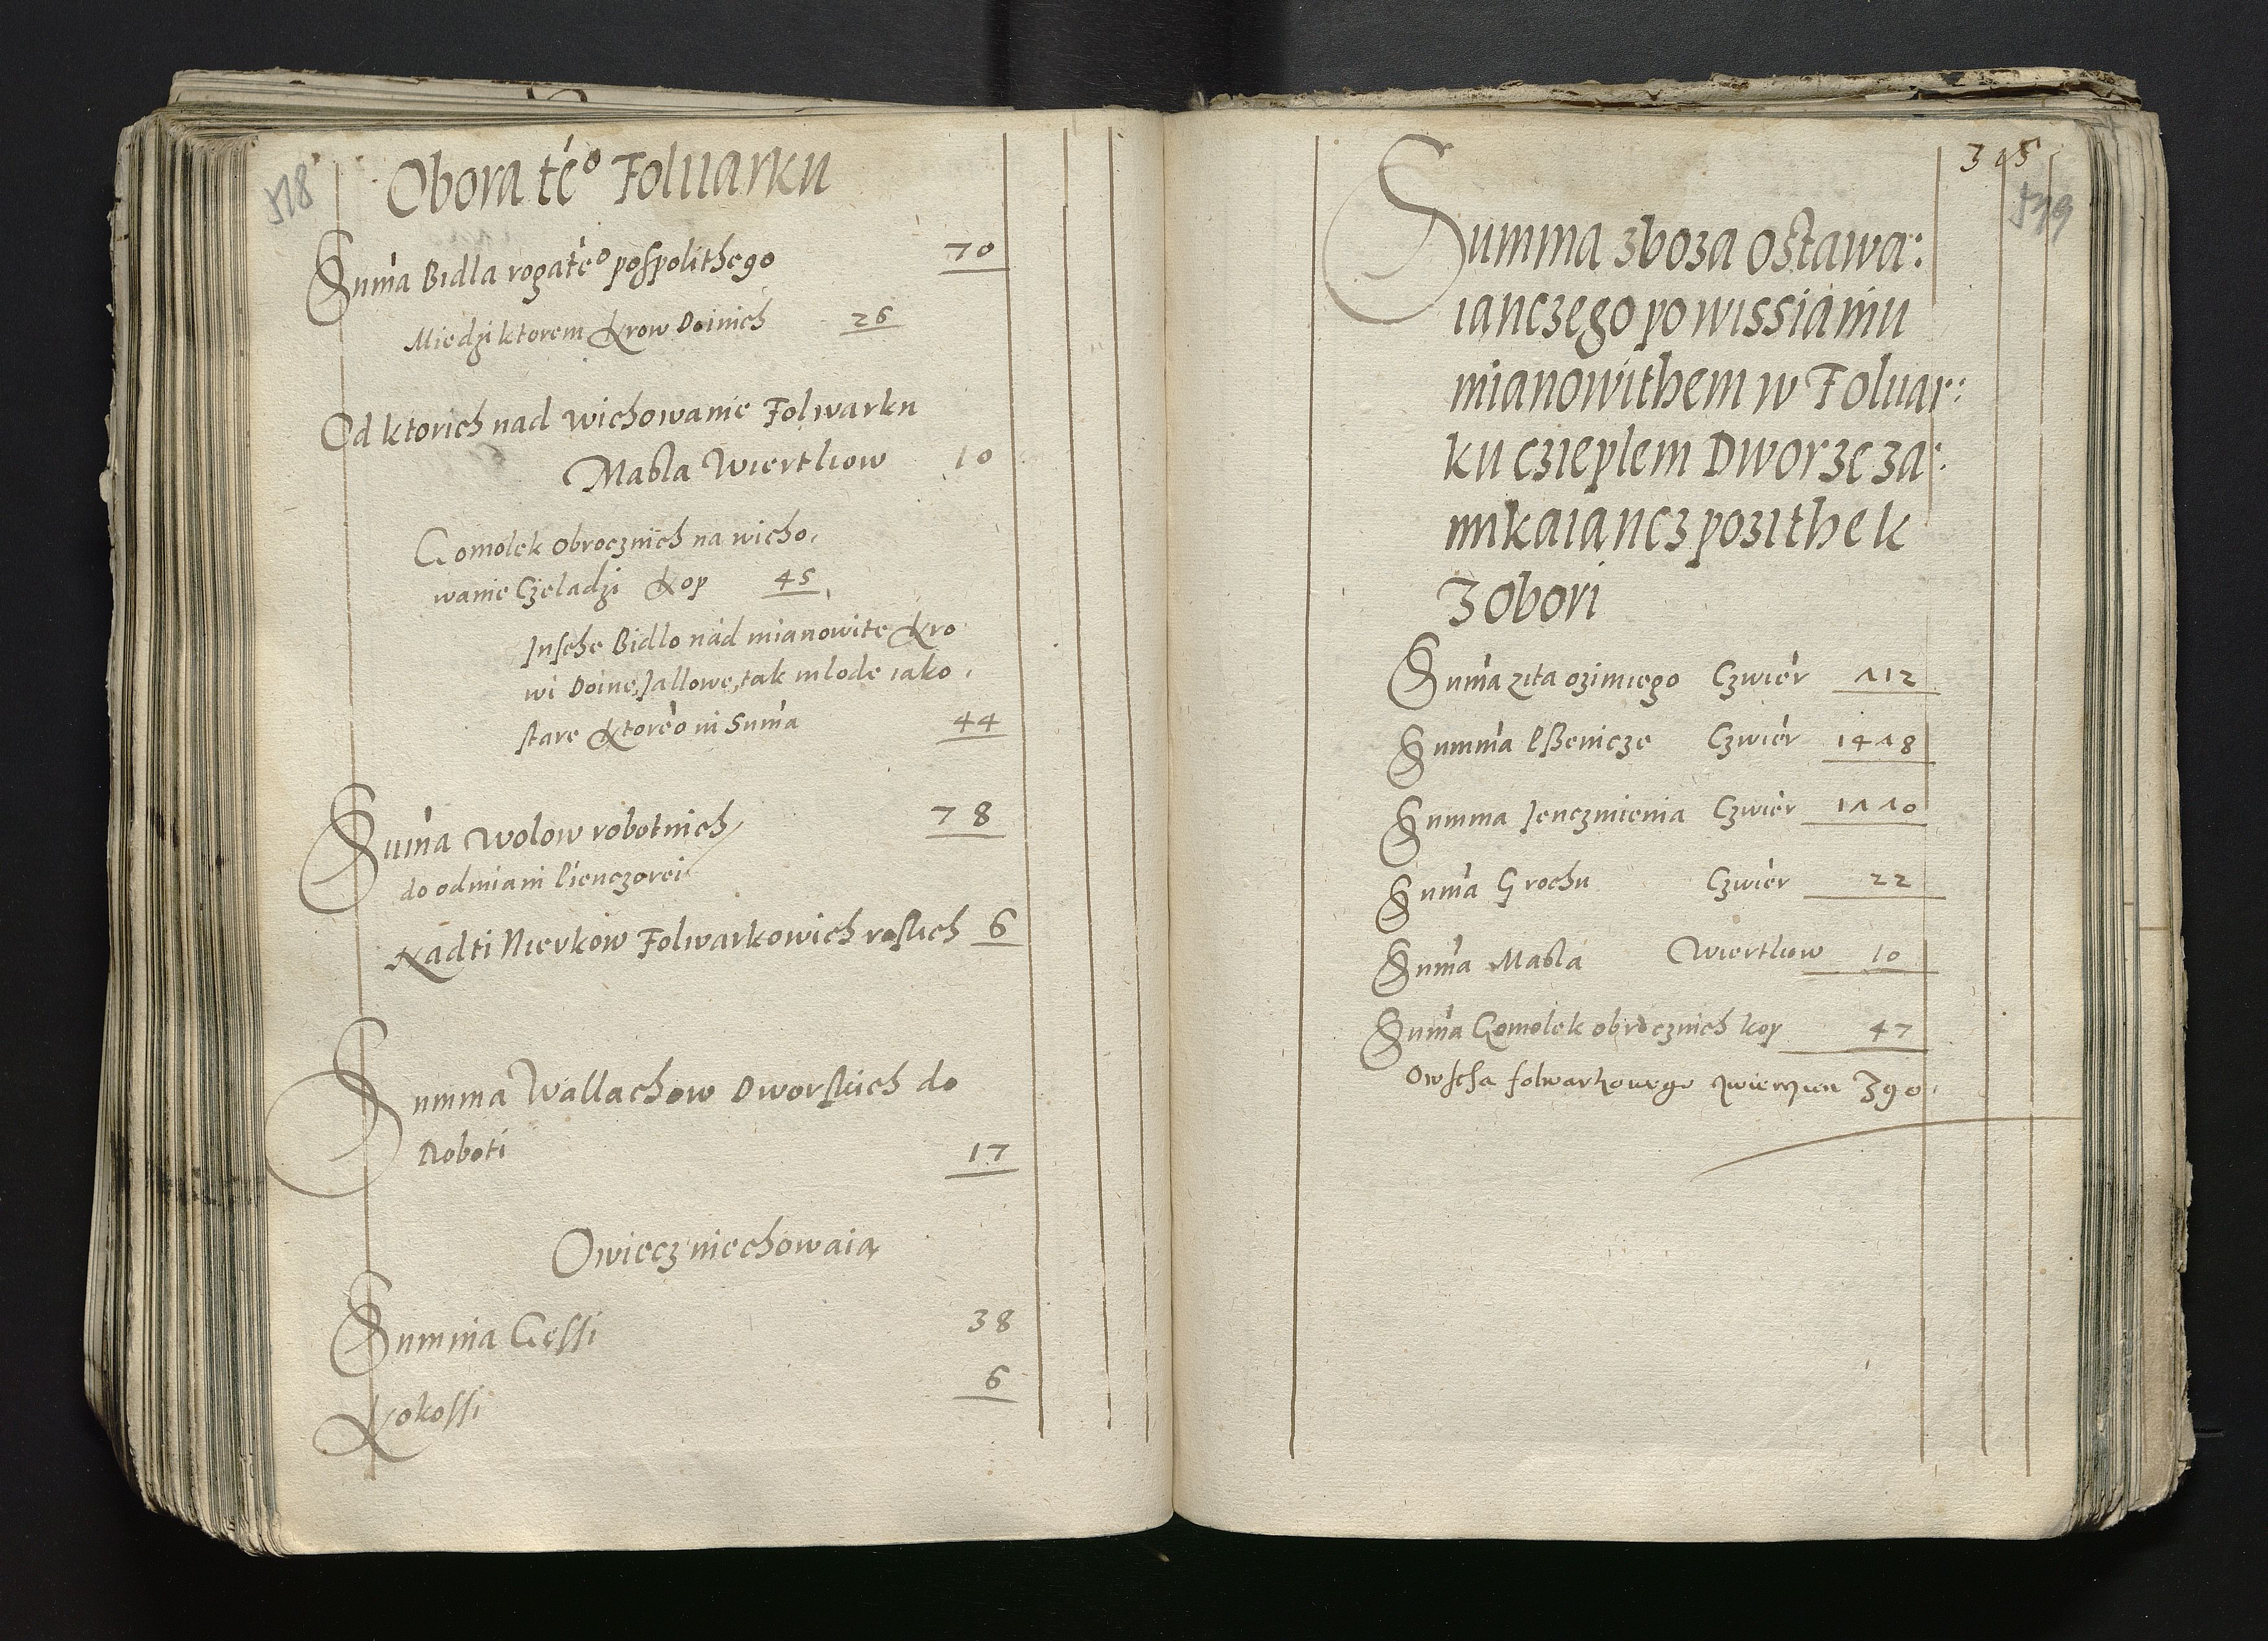 518
Obora té° Foluarku
Sum̃a Bidla rogate° pospolithego 70
Miedzi ktorem Krow Doinich 26
Od ktorich nad wichowanie Folwarku
Masla Wiertliow 10
Gomolek obrocznich na wicho,
wanie Czeladzi Kop 45
Jnsche Bidlo nad mianowite Kro
wi Doine, Jallowe, tak mlode iako,
stare Ktore°o ni Sum̃a 44
Sum̃a Wolow robotnich 78
do odmiani
Nadti Nierkow Folwarkowich 6
Summa Wallachow Dworskich do
Roboti 17
Owiecz niechowaią
Summa Gessi 38
Kokossi 6
315
519
Summa zboza ostawa:
ianczego po wissianiu
mianowithem w Foluar:
ku czieplem Dworze za:
mikaiancz pozithek
z obori
Sum̃a zita ozimiego Czwier 112
Summa Pssenicze Czwier 1418
Summa Jenczmienia Czwier 1110
Sum̃a Grochu Czwier 22
Sum̃a Masla Wiertliow 10
Sum̃a Gomolek obrocznich kop 47
Owscha folwarkowego 390